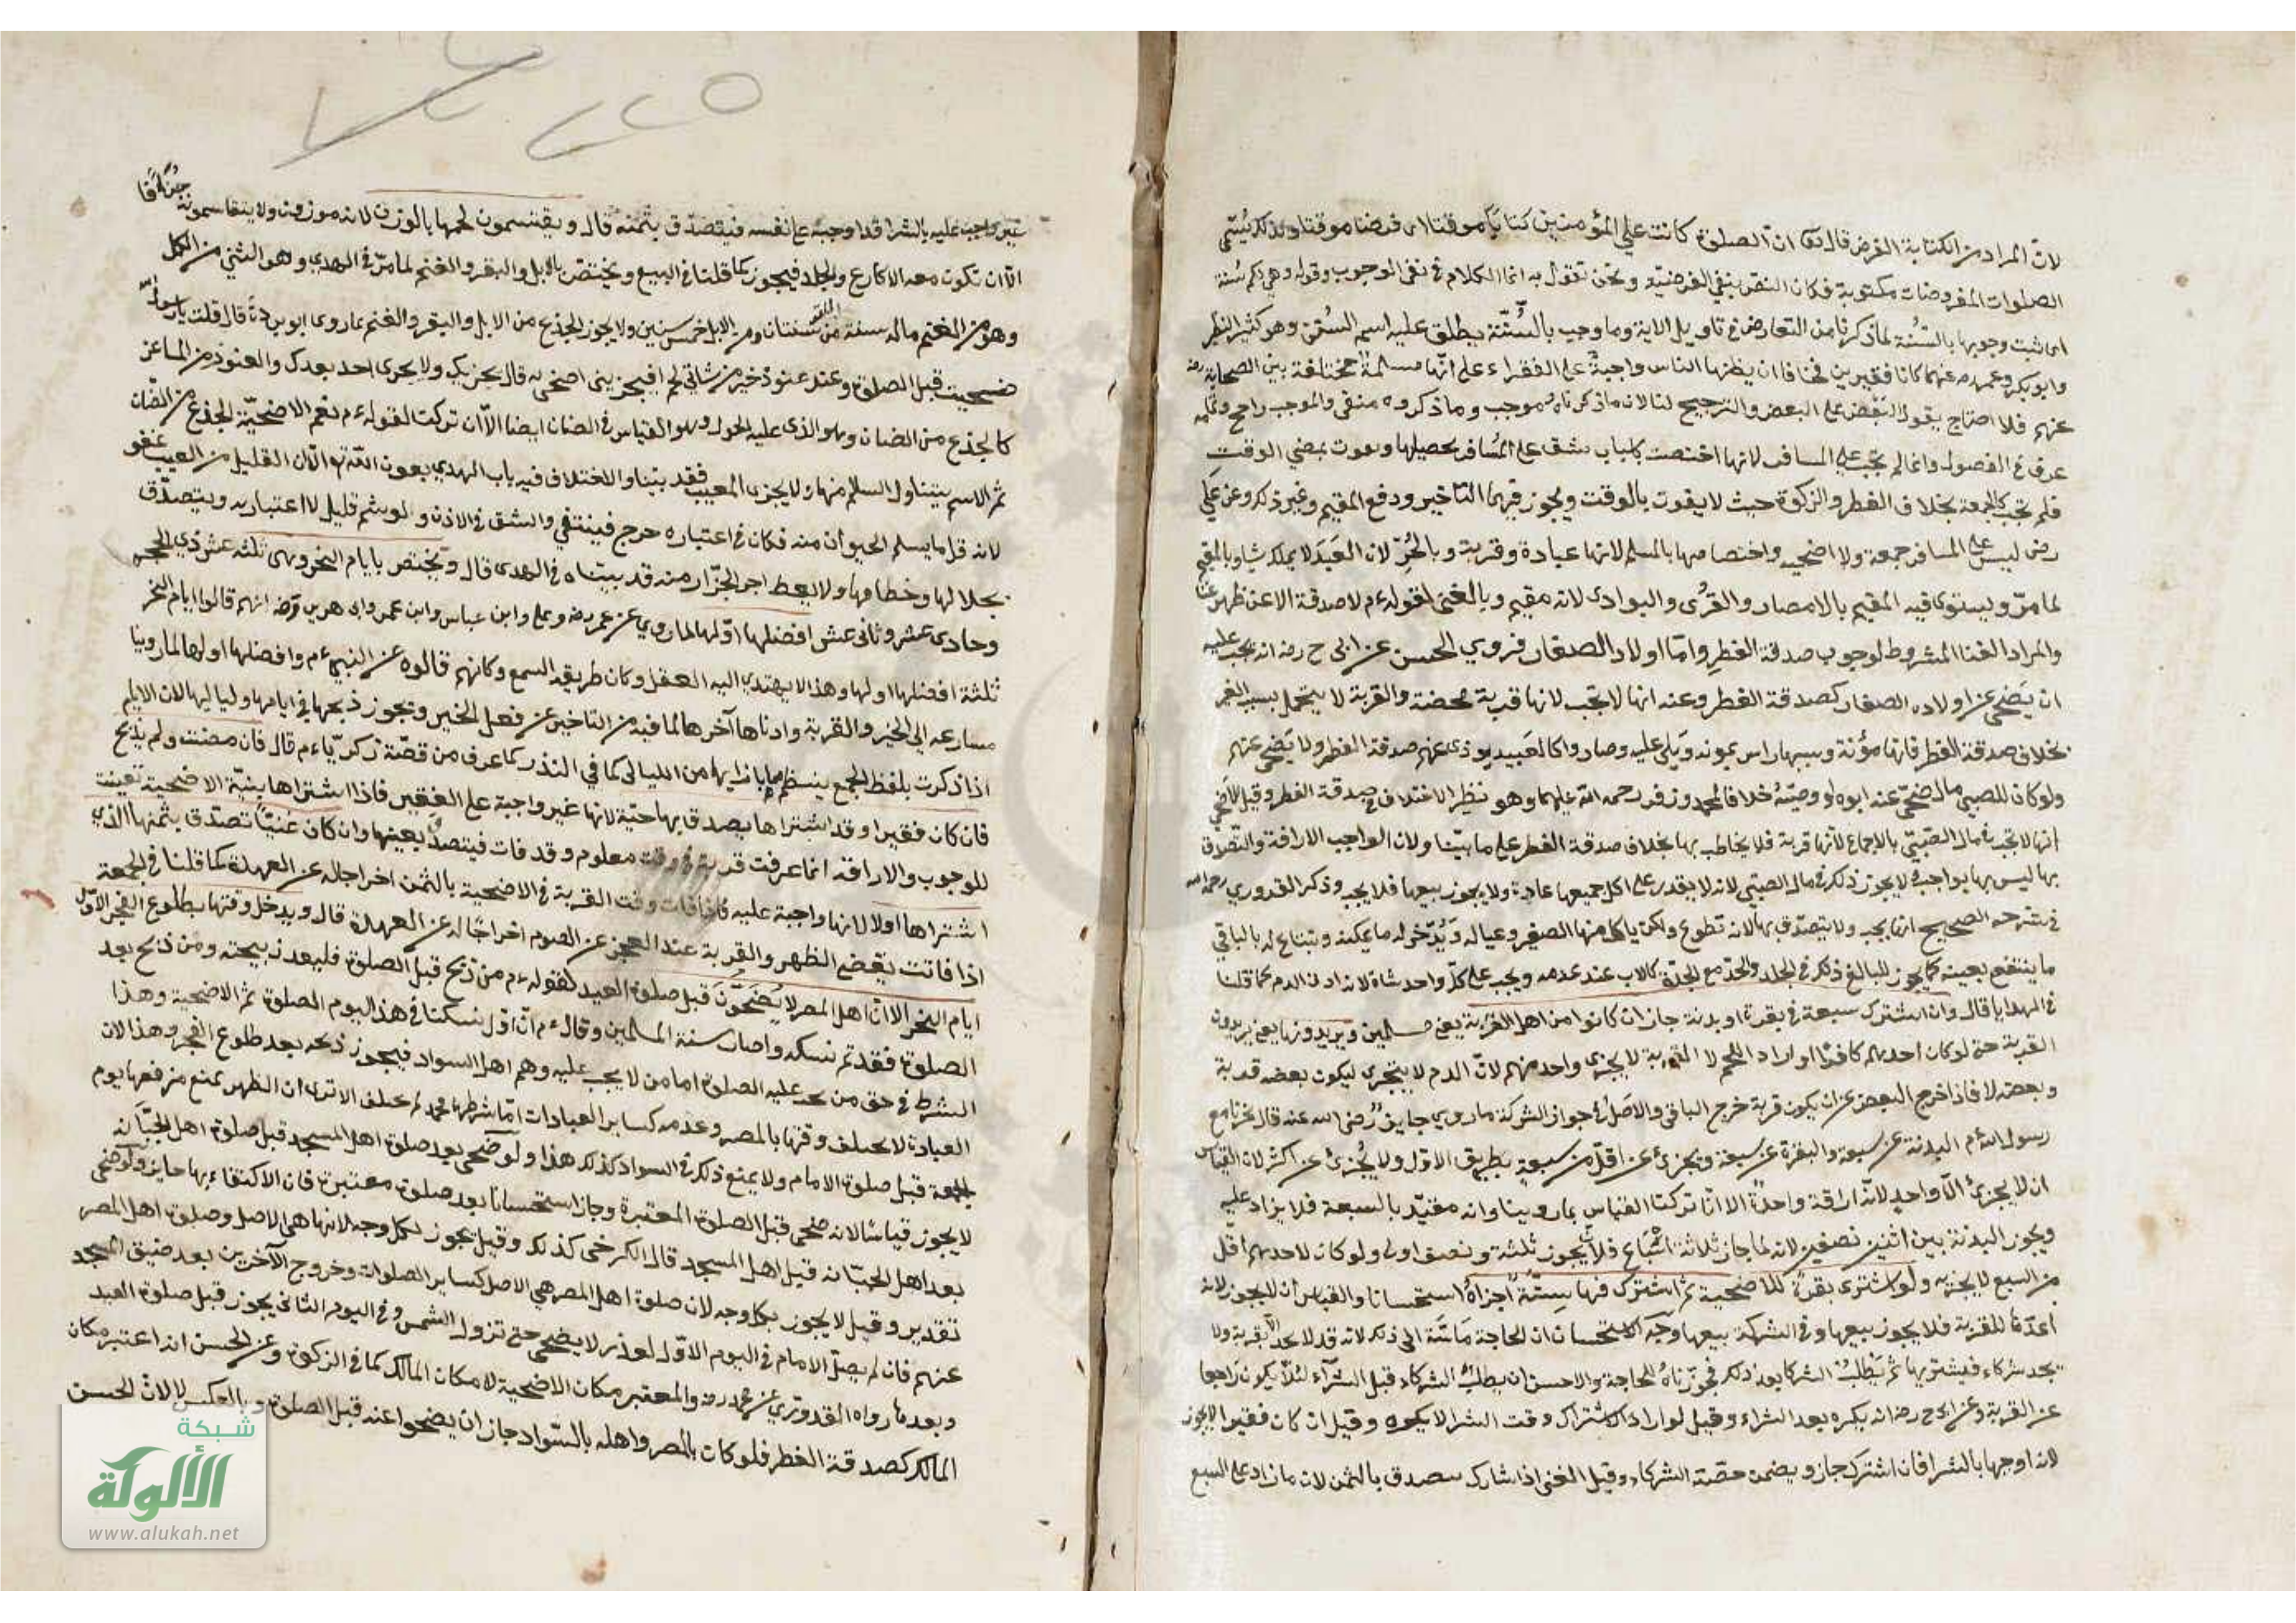 لان المراد من الكتابة الفرض قال تعالى ان الصلوة كانت على المؤمنين كتابا موقوتا اى فرضا موقتا ولذلك يسمى
الصلوات المفروضات مكتوبة فكان النص ينفي الفرضية ونحن نقول به انما الكلام في نفى الوجوب وقوله وهي لكم سنة
اى ثبت وجوبها بالسنة لما ذكرنا من التعارض في تاويل الاية وما وجب بالسنة يطلق عليه اسم السنة وهو كثير النظر
وابوبكر وعمر رضه عنهما كانا فقيرين فخافا ان يظنها الناس واجبة على الفقراء على انها مسئلة مختلفة بين الصحابة رضه
عنهم فلا احتجاج بقول البعض على البعض والترجيح لنا لان ما ذكرناه موجب وما ذكروه منفى والموجب راجح
عرف في الفصول وانما لم تجب على المسافر لانها اختصت باسباب يشق على المسافر تحصيلها ويفوت بمضي الوقت
فلم تجب كالجمعة بخلاف الفطر والزكوة حيث لا يفوت بالوقت ويجوز فيهما التاخير ودفع القيم وغير ذلك وعن علي
رضى ليس على المسافر جمعة ولا اضحيه واختصاصها بالمسلم لانها عبادة وقربة وبالحر لان العبد لا يملك شيا وبالمقيم
لما مر ويستوى فيه المقيم بالامصار والقرى والبوادى لانه مقيم وبالغنى لقوله ءم لا صدقة الا عن ظهر غنا
والمراد الغنا المشروط لوجوب صدقة الفطر واما اولاد الصغار فروي الحسن عن ابى ح رضه انه يجب عليه
ان يضحى عن اولاده الصغار كصدقة الفطر وعنه انها لا تجب لانها قربة محضة والقربة لا يتحمل بسبب الغير
بخلاف صدقة الفطر فانها مؤنة وسببها راس يمونه ويلى عليه وصاروا كالعبيد يوذى عنهم صدقة الفطر ولا يضحى عنهم
ولو كان للصبي مال ضحى عنه ابوه او وصيه خلافا لمحمد وزفر رحمه الله عليهما وهو نظير الاختلاف في صدقة الفطر وقيل الاضحى
انها لا تجب في مال الصبي بالاجماع لانها قربة فلا يخاطب بها بخلاف صدقة الفطر على ما بينا ولان الواجب الاراقة والتصدق
بها ليس بواجب ولا يجوز ذلك في مال الصبي لانه لا يقدر على اكل جميعها عادة ولا يجوز بيعها فلا يجب وذكر القدوري رحمه الله
في شرحه الصحيح انها يجب ولا يتصدق بها لانه تطوع ولكن ياكل منها الصغير وعياله ويدخر له ما يمكنه ويبتاع له بالباقي
ما ينتفع بعينه كما يجوز للبالغ ذلك في الجلد والجد مع الجدة كالاب عند عدمه ويجب على كل واحد شاة لانه ادنى الدم كما قلنا
في الهدايا قال وان اشترك سبعة في بقرة او بدنة جاز ان كانوا من اهل القربة يعنى مسلمين ويريدونها يعنى يريدون
القربة حتى لو كان احدهم كافرا او اراد اللحم لا القربة لا يجزى واحد منهم لان الدم لا يتجزى ليكون بعضه قربة
وبعضه لا فاذا خرج البعض عن ان يكون قربة خرج الباقى والاصل في جواز الشركة ما روي جابر رضى الله عنه قال نحرنا مع
رسول الله ءم البدنة عن سبعة والبقرة عن سبعة وتجزئ عن اقل من سبعة بطريق الاولى ولا تجزئ عن اكثر لان القياس
ان لا يجزئ الا واحد لانه اراقة واحدة الا انا تركنا القياس بما روينا وانه مقيد بالسبعة فلا يزاد عليه
ويجوز البدنة بين اثنين نصفين لانه لما جاز ثلاثة اسباع فلان يجوز ثلثة ونصف اولى ولو كان لاحدهم اقل
من السبع لا يجزيه ولو اشترى بقرة للاضحية ثم اشترك فيها ستة اجزاه استحسانا والقياس ان لا يجوز لانه
اعدها للقربة فلا يجوز بيعها وفى الشركة بيعها وجه الاستحسان ان الحاجة ماسة الى ذلك لانه قد لا يجد الا بقرية ولا
يجد شركاء فيشتريها ثم يطلب الشركا بعد ذلك فجوزناه للحاجة والاحسن ان يطلب الشركاء قبل الشرآء لئلا يكون راجعا
عن القربة وعن ابى ح رضه انه يكره بعد الشراء وقيل لو اراد الاشتراك وقت الشرا لا يكره وقيل ان كان فقيرا لا يجوز
لانه اوجبها بالشرا فان اشترك جاز ويضمن حصة الشركاء وقيل الغنى اذا شارك يتصدق بالثمن لان ما زاد على السبع
غير واجب عليه بالشرا قد اوجبه على نفسه فيتصدق بثمنه قال ويقتسمون لحمها بالوزن لانه موزون ولا يتقاسمونه جزافا
الا ان تكون معه الاكارع والجلد فيجوز كما قلنا في البيع ويختص بالابل والبقر والغنم لما مر في الهدي وهو الثني من الكل
وهو من الغنم ماله سنة من البقر سنتان ومن الابل خمس سنين ولا يجوز الجذع من الابل والبقر والغنم بما روى ابو بردة قال قلت يا رسول الله
ضحيت قبل الصلوة وعندى عنوذ خير من شاتي لحم افيجزينى اضحى به قال يجزيك ولا يجرى احد بعدك والعنوذ من الماعز
كالجذع من الضان وهو الذى عليه الحول وهو القياس في الضان ايضا الا ان تركت لقوله ءم نعم الاضحية الجذع من الضان
ثم الاسم يتناول السليم منها ولا يجزى المعيب فقد بينا والاختلاف فيه باب الهدي بعون الله تع الا ان القليل من العيب عفو
لانه قل ما يسلم الحيوان منه فكان في اعتباره حرج فينتفي والشق في الاذن ولو شم قليل لا اعتبار به ويتصدق
بجلالها وخطامها ولا يعط اجر الجزار منه قد بيناه في الهدى قال وتختص بايام النحر وهى ثلثه عشر ذي الحجه
وحادى عشر وثانى عشر افضلها اولها لما روي عن عمر رضه وعلى وابن عباس وابن عمر وابى هريرة رضه انهم قالوا ايام النحر
ثلثة افضلها اولها وهذا لا يهتدي اليه العقل وكان طريقه السمع وكانهم قالوه عن النبى ءم وافضلها اولها لما روينا
مسارعه الى الخير والقربة وادناها آخرها لما فيه من التاخير عن فعل الخير وتجوز ذبحها في ايامها ولياليها لان الايام
اذا ذكرت بلفظ الجمع ينتظم ما بازايها من الليالى كما في النذر كما عرف من قصة زكريا ءم قال فان مضت ولم يذبح
فان كان فقيرا وقد اشتراها يصدق بها حية لانها غير واجبة على الفقير فاذا اشتراها بنية الاضحية تعينت
للوجوب والاراقه انما عرفت قربة في وقت معلوم وقد فات فيتصدق بعينها وان كان غنيا تصدق بثمنها الذي
اشتراها اولا لانها واجبة عليه فاذا فات وقت القربة في الاضحية بالثمن اخراجا له عن العهدة كما قلنا في الجمعة
اذا فاتت يقضى الظهر والقربة عند العجز عن الصوم اخراجا له عن العهدة قال ويدخل وقتها بطلوع الفجر الاول
ايام النحر الا ان اهل المصر لا يضحون قبل صلوة العيد لقوله ءم من ذبح قبل الصلوة فليعد ذبيحته ومن ذبح بعد
الصلوة فقد تم نسكه واصاب سنة المسلمين وقال ءم ان اول نسكنا في هذا اليوم الصلوة ثم الاضحية وهذا
الشرط في حق من يجب عليه الصلوة اما من لا يجب عليه وهم اهل السواد فيجوز ذبحه بعد طلوع الفجر وهذا لان
العبادة لا يختلف وقتها بالمصر وعدمه كساير العبادات اما شرطها فيختلف الاترى ان الظهر يمنع من فعلها يوم
الجمعة قبل صلوة الامام ولا يمنع ذلك في السواد كذلك هذا ولو ضحى بعد صلوة اهل المسجد قبل صلوة اهل الجبانه
لا يجوز قياسا لانه ضحى قبل الصلوة المعتبرة وجاز استحسانا بعد صلوة معتبرة فان الاكتفاء بها جايز ولو ضحى
بعد اهل الجبانه قبل اهل المسجد قال الكرخى كذلك وقيل يجوز بكل وجه لانها هى الاصل وصلوة اهل المصر
تقدير وقيل لا يجوز بكل وجه لان صلوة اهل المصر هي الاصل كساير الصلوات وخروج الآخرين بعد ضيق المسجد
عنهم فان لم يصل الامام في اليوم الاول لعذر لا يضحى حتى تزول الشمس وفى اليوم الثانى يجوز قبل صلوة العيد
وبعدها رواه القدوري عن محمد رضه والمعتبر مكان الاضحية لا مكان المالك كما في الزكوة وعن الحسن انه اعتبر مكان
المالك كصدقة الفطر فلو كان بالمصر واهله بالسواد جاز ان يضحوا عنه قبل الصلوة وبالعكس لا لان الحسن
شبكة
الألوكة
www.alukah.net